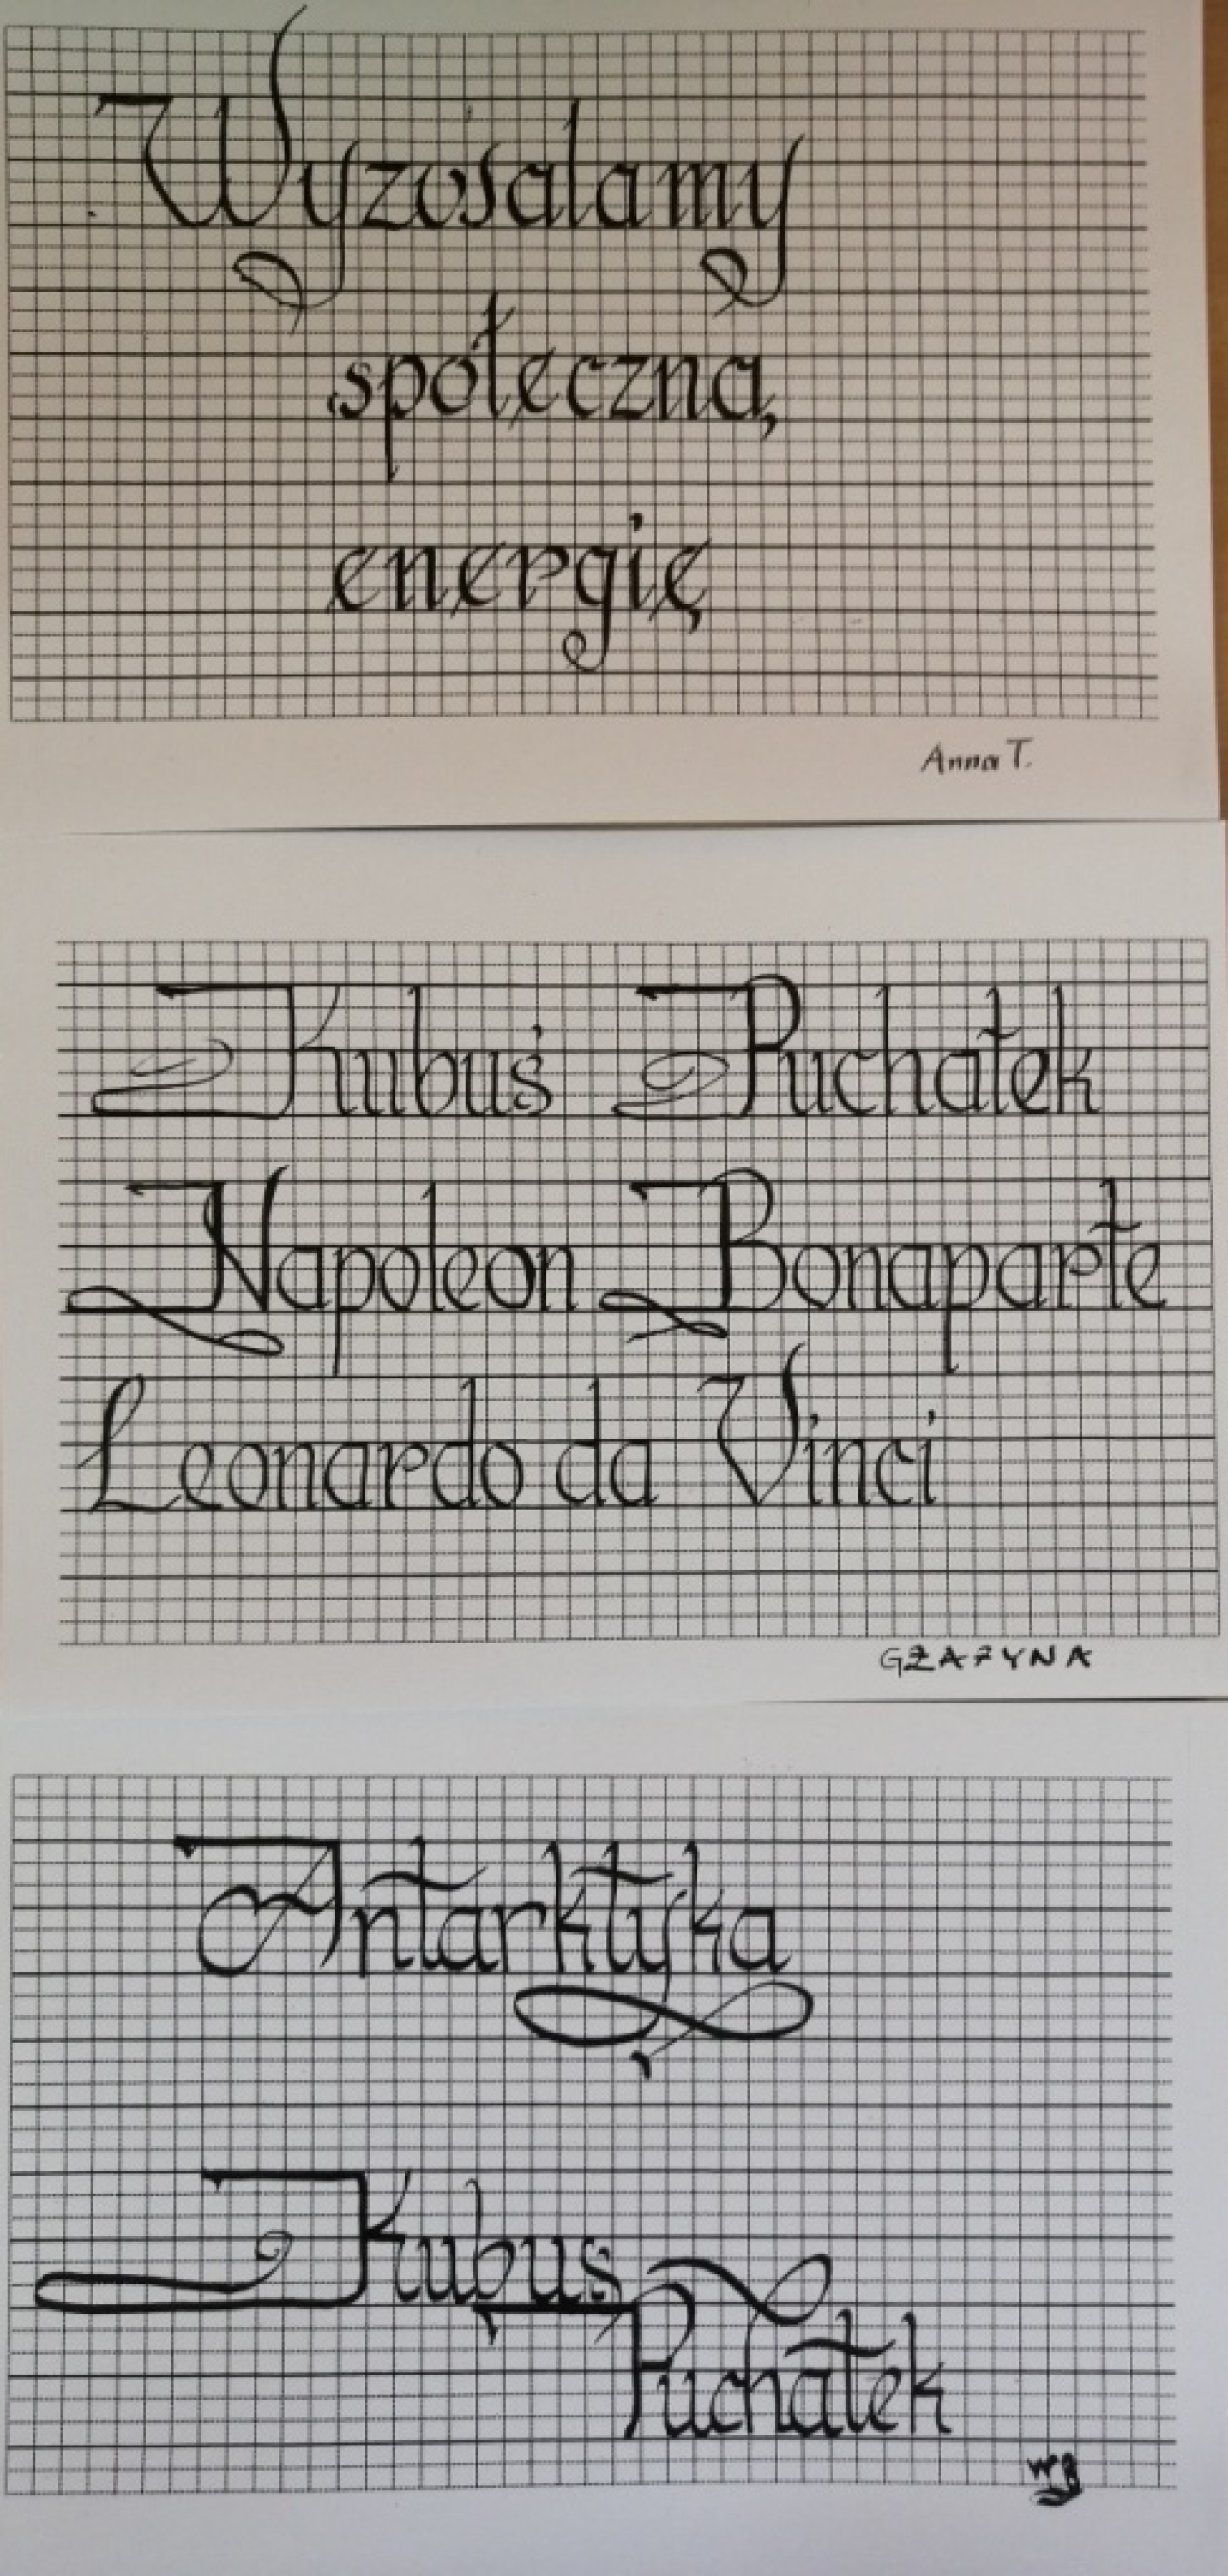 Wyzwalamy
społeczną
energię
Anna T.
Kubuś Puchatek
Napoleon Bonaparte
Leonardo da Vinci
GRAŻYNA
Antarktyka
Kubuś
Puchatek
WB